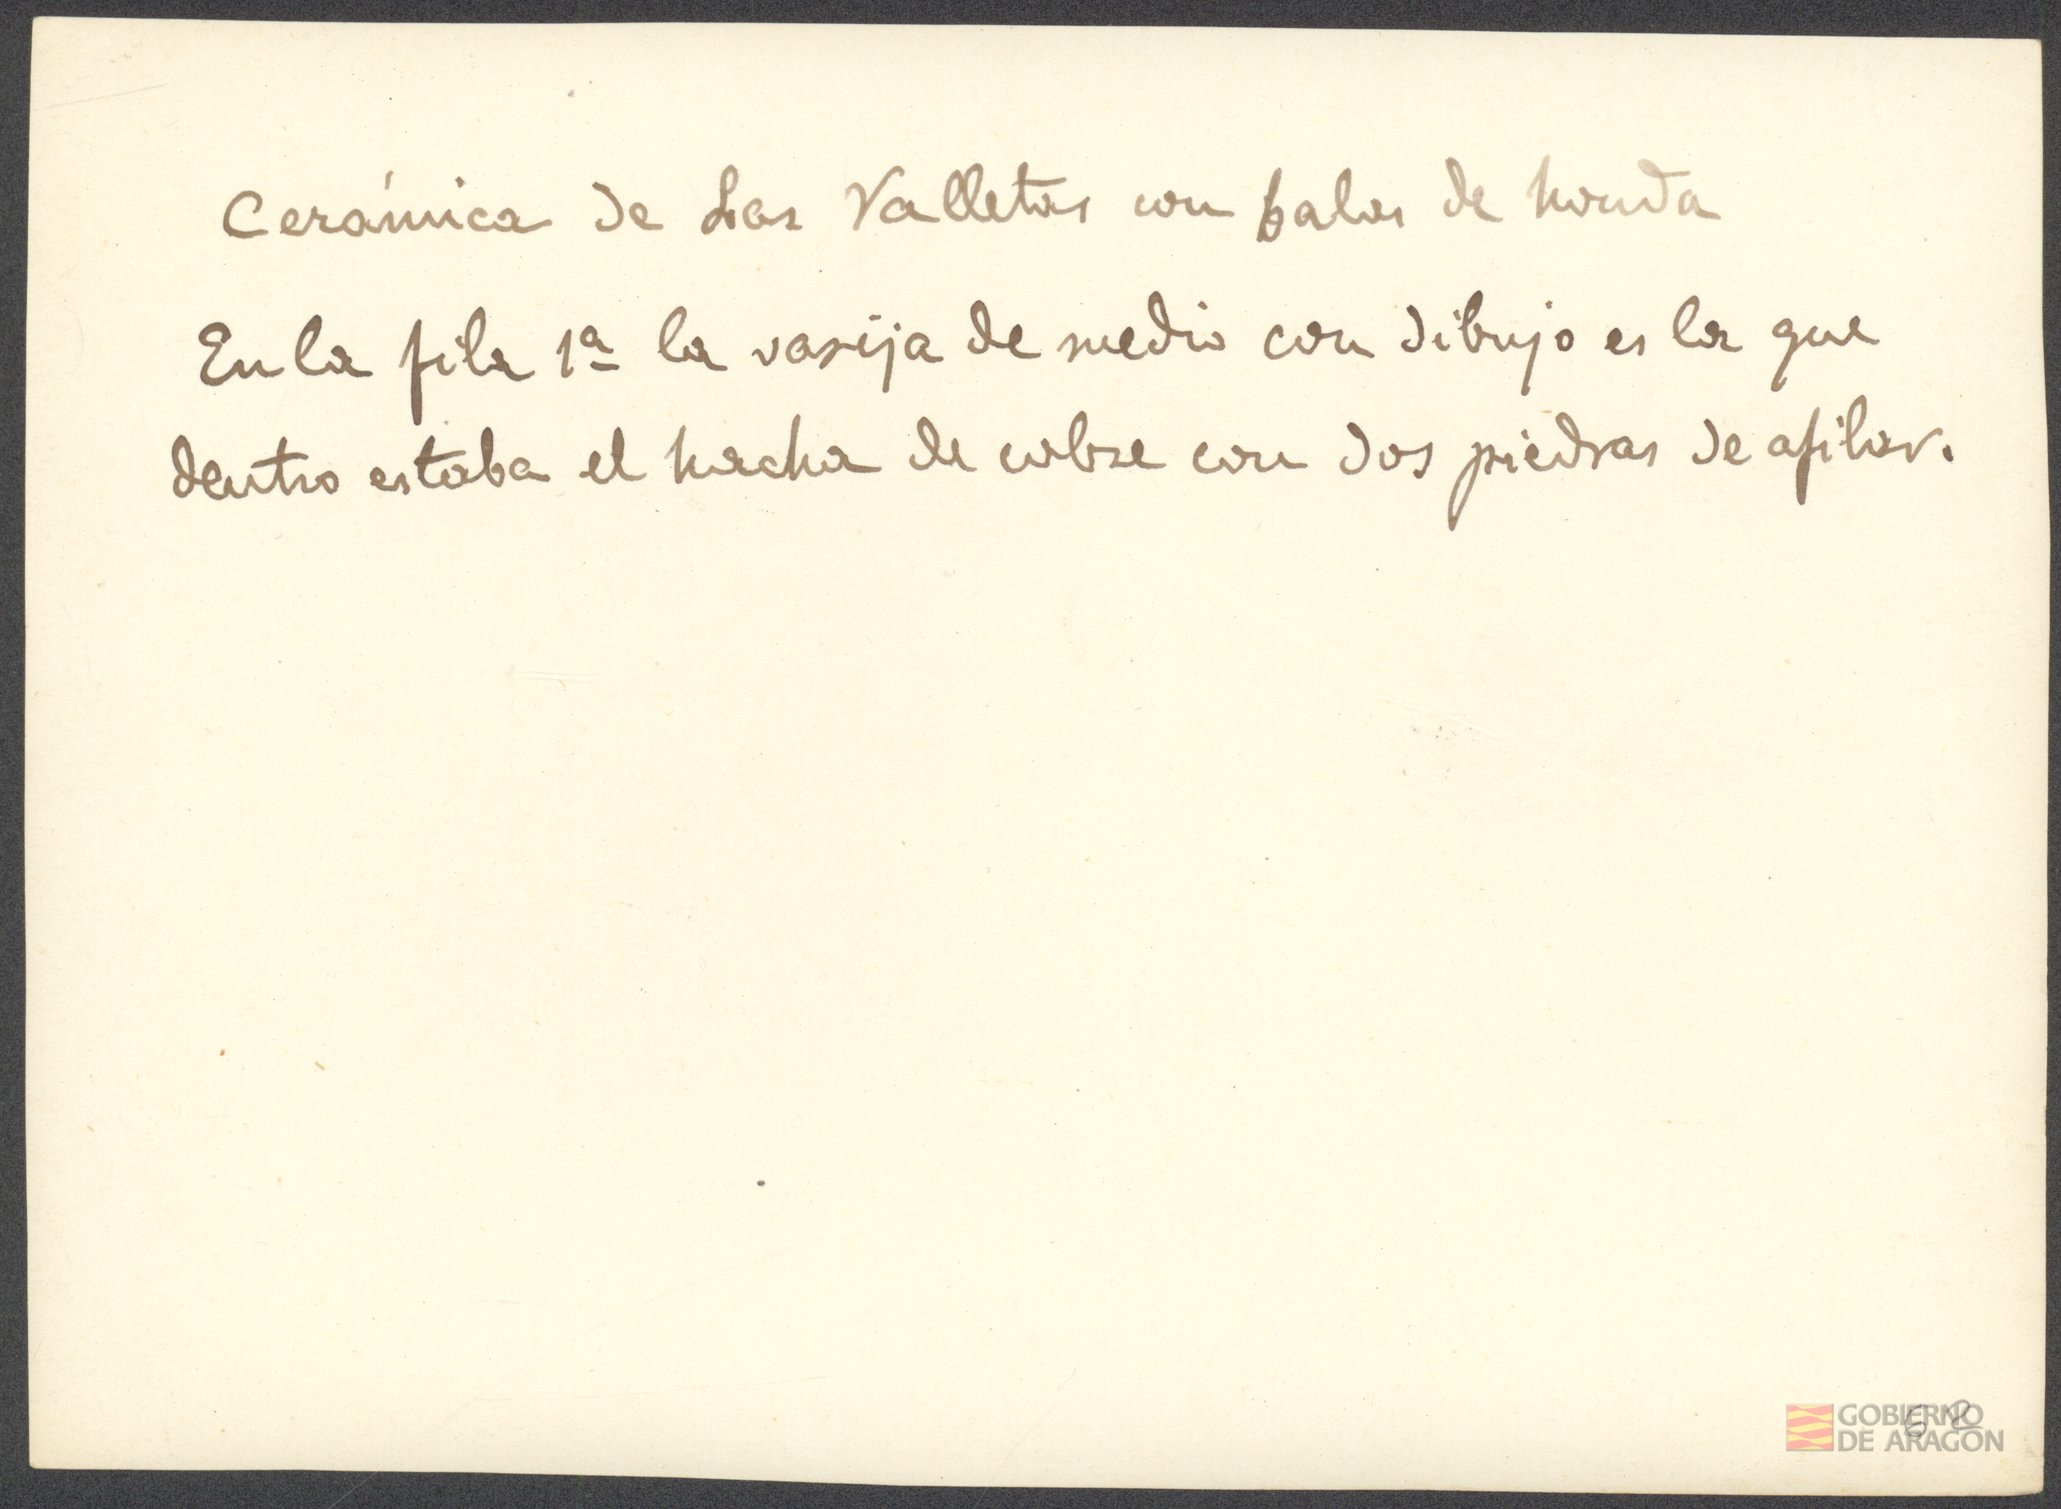 Cerámica de Las Valletas con balas de honda
En la fila 1ª la vasija de medio con dibujo es la que
dentro estaba el hacha de cobre con dos piedras de afilar.
62
GOBIERNO
DE ARAGON